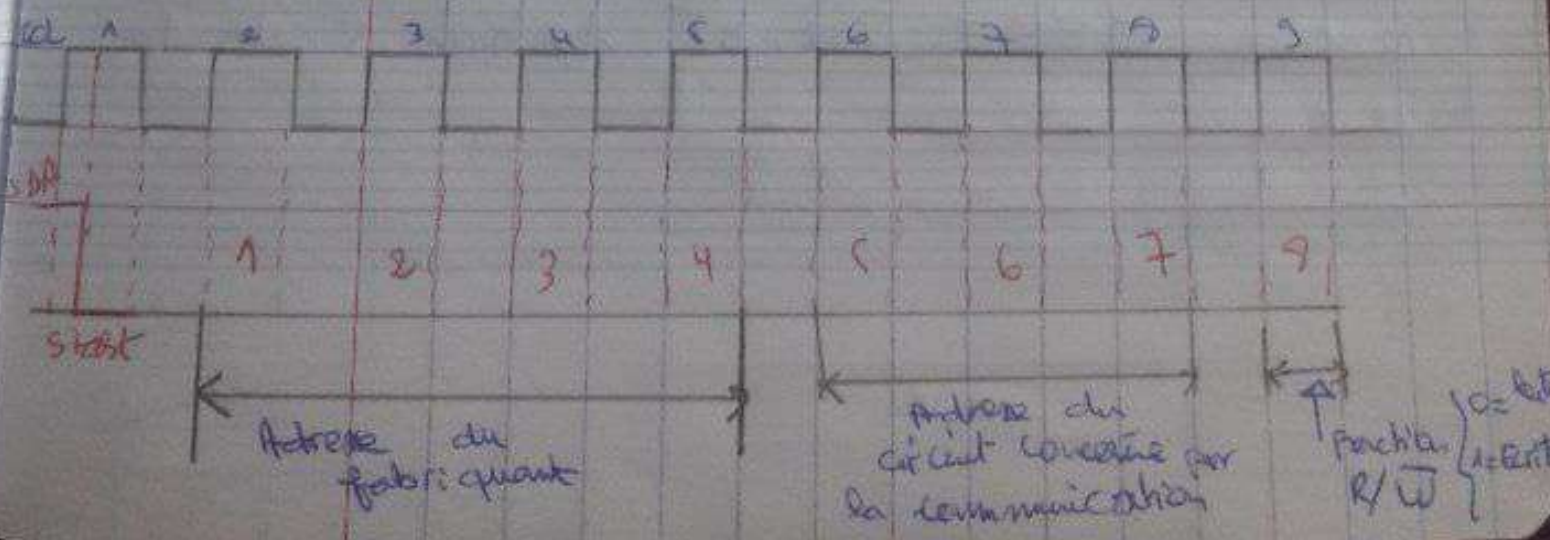 scl 1 2 3 4 5 6 7 8 9
SDA
1 2 3 4 5 6 7 8
start
Adresse du
fabriquant
Adresse du
circuit concerné par
la communication
Fonction
R/W̅
0=
1=